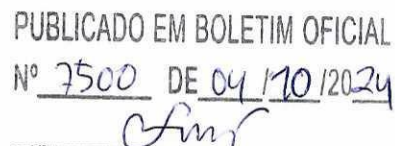 PUBLICADO EM BOLETIM OFICIAL
Nº 7500 DE 04/10/2024